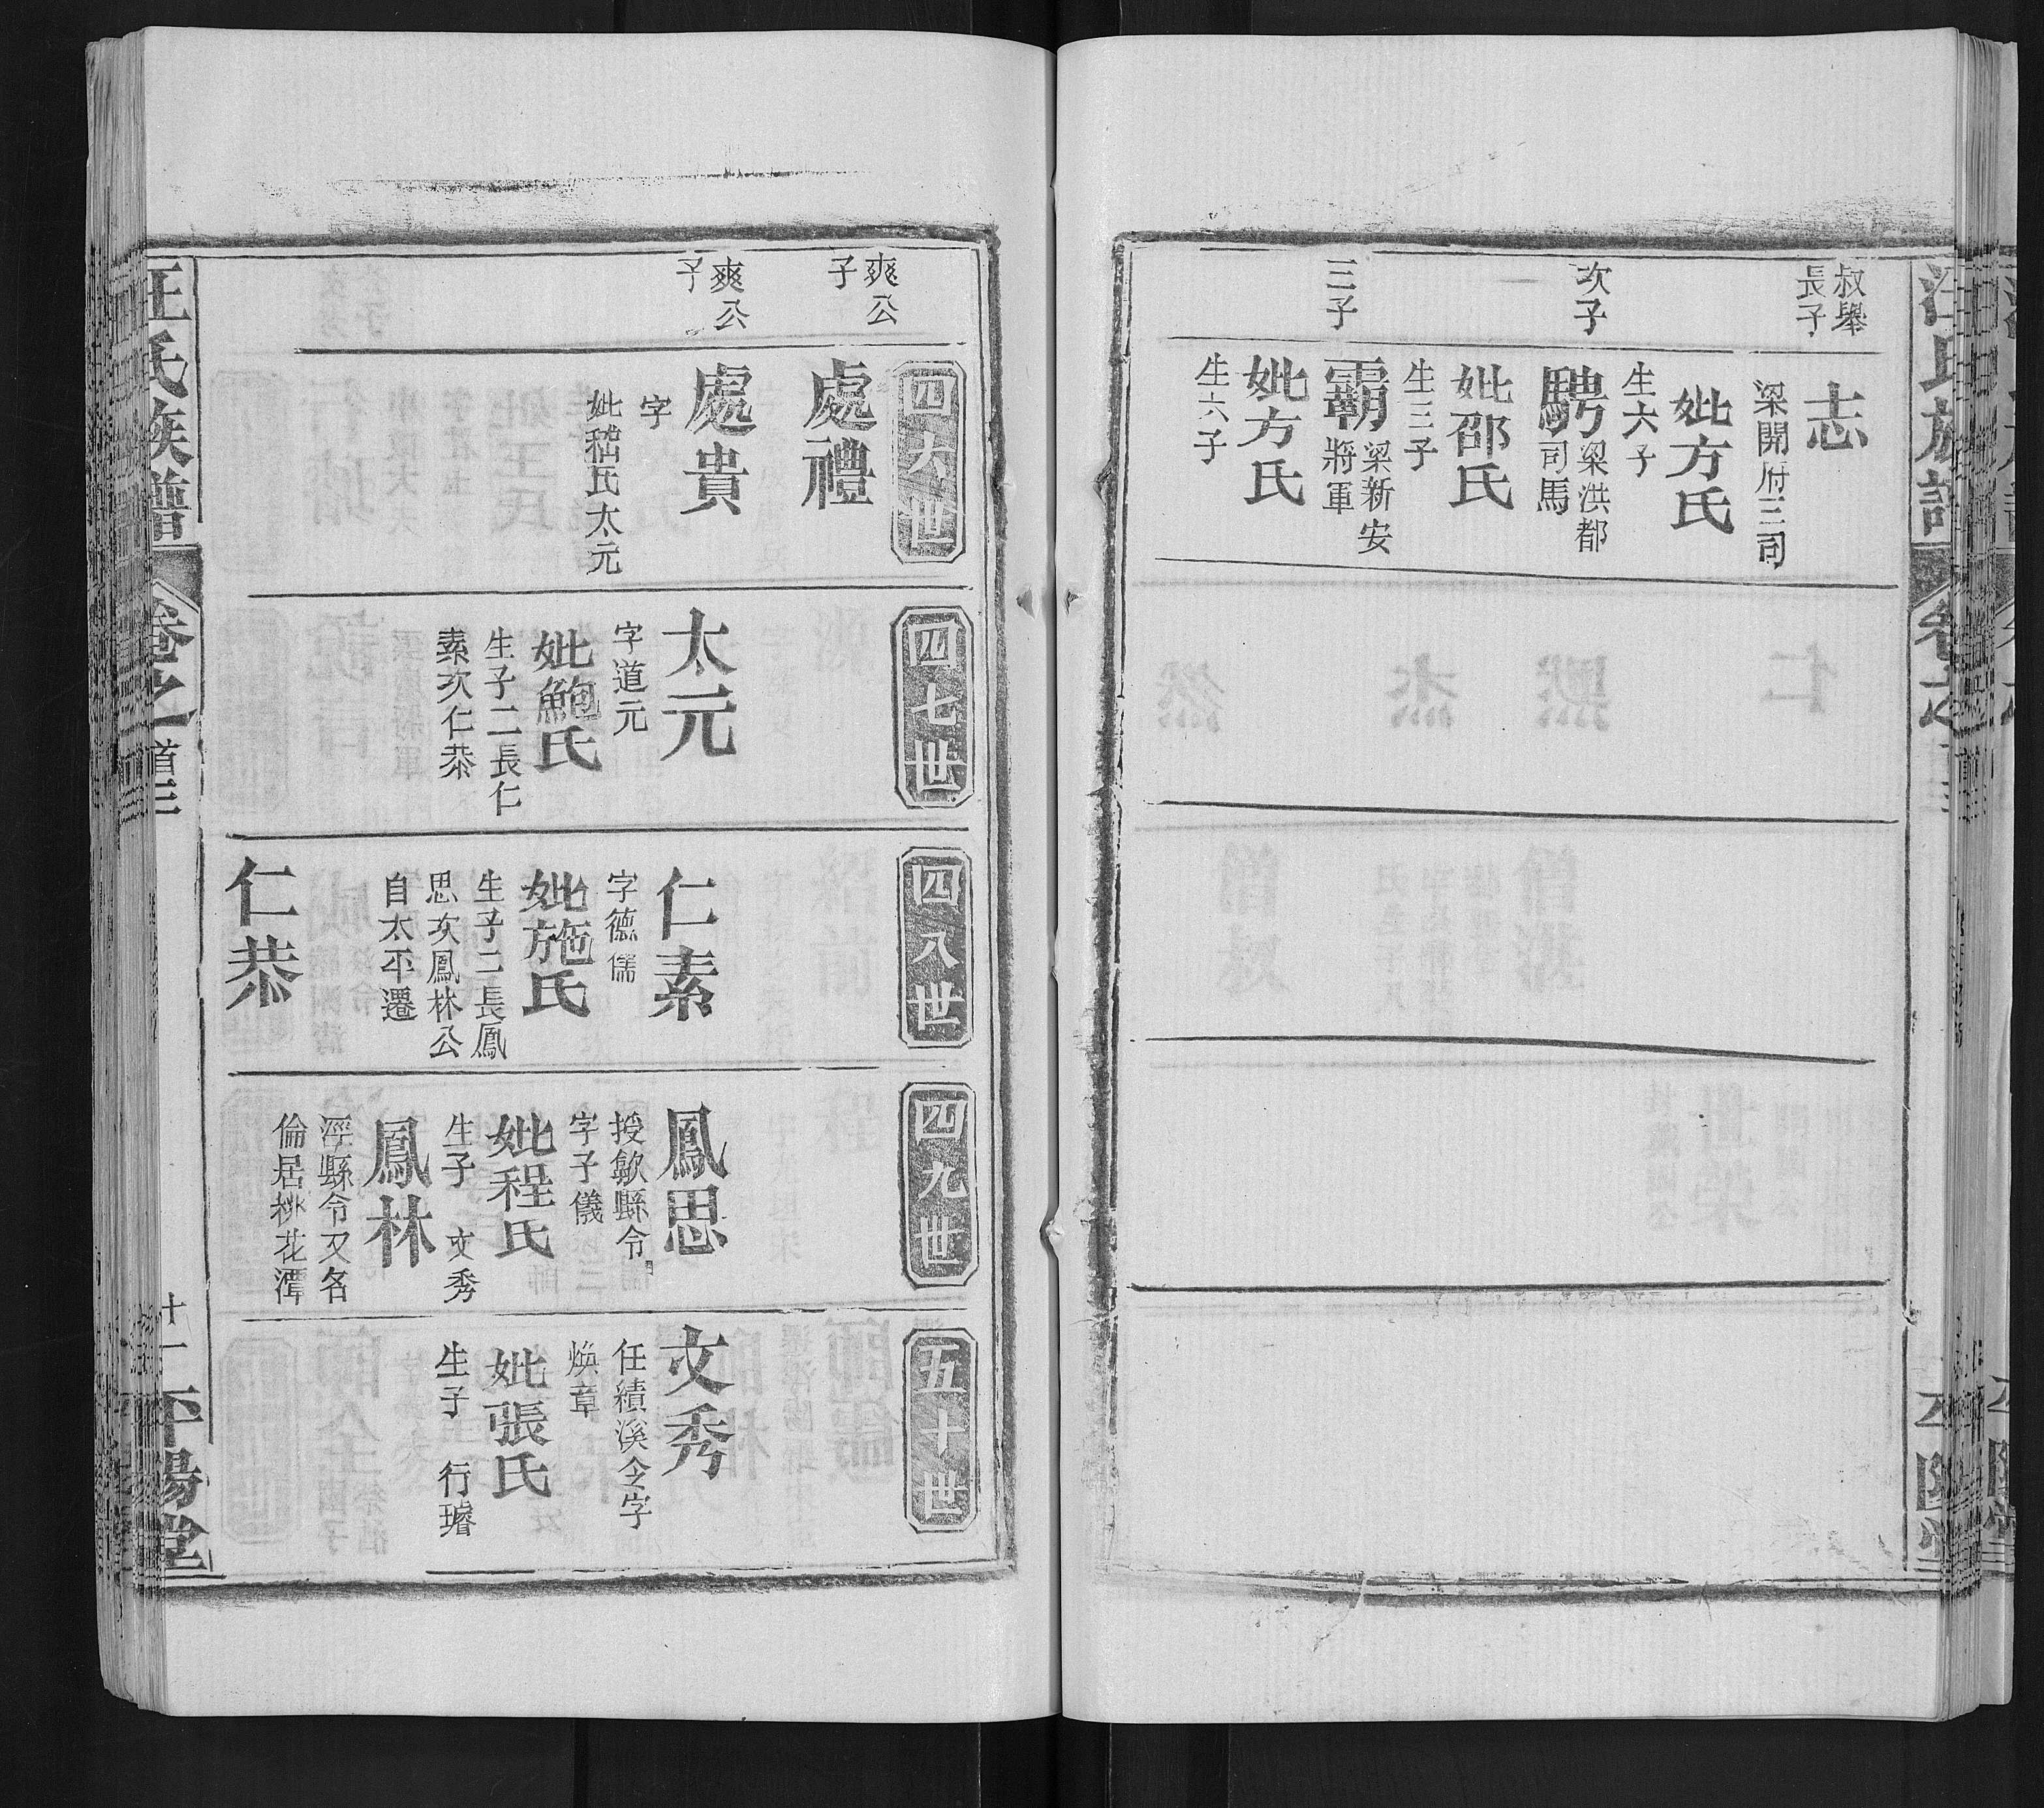 叔舉
長子
志
梁開府三司
妣方氏
生六子
次子
騁
梁洪都
司馬
妣邵氏
生三子
三子
霸
梁新安
將軍
妣方氏
生六子
四六世
爽公
子
處禮
爽公
子
處貴
字
妣嵇氏太元
四七世
太元
字道元
妣鮑氏
生子二長仁
素次仁恭
四八世
仁素
字德儒
妣施氏
生子二長鳳
思次鳳林公
自太平遷
仁恭
四九世
鳳思
授歙縣令
字子儀
妣程氏
生子 文秀
鳳林
涇縣令又名
倫居桃花潭
五十世
文秀
任績溪令字
煥章
妣張氏
生子 行璿
汪氏族譜
卷之首三
十一
平陽堂